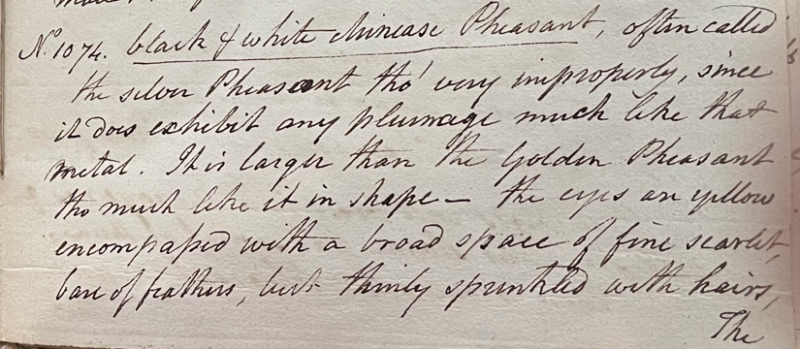 No. 1074. black & white chinease Pheasant, often called
the silver Pheaseant tho' very improperly, since
it does exhibit any plumage much like that
metal. It is larger than the Golden Pheasant
tho much like it in shape – the eyes are yellow
encompassed with a broad space of fine scarlet,
bare of feathers, but thinly sprinkled with hairs,
The